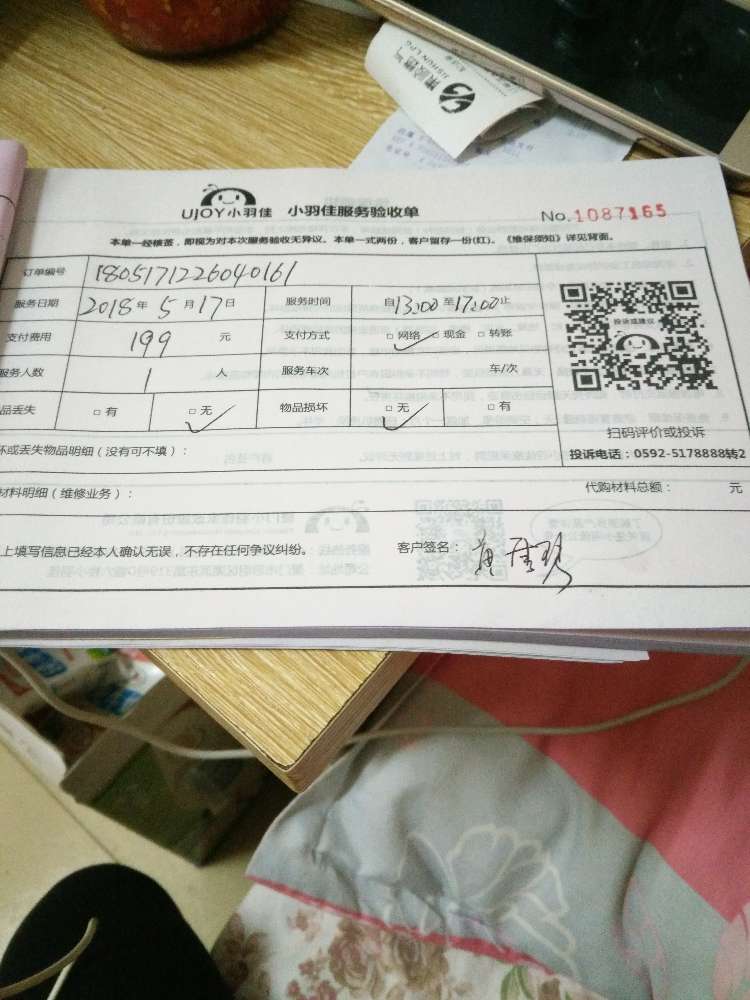 UJOY小羽佳 小羽佳服务验收单 No.1087165
本单一经横盖，即视为对本次服务验收无异议。本单一式两份，客户留存一份(红)。《维保须知》详见背面。
订单编号 1805171226040161
服务日期 2018年5月17日 服务时间 自13:00至17:00止
支付费用 199 元 支付方式 □网络 □现金 □转账
服务人数 1 人 服务车次 车/次
品丢失 □有 □无 物品损坏 □无 □有
投诉或建议
扫码评价或投诉
投诉电话：0592-5178888转2
坏或丢失物品明细（没有可不填）：
材料明细（维修业务）： 代购材料总额： 元
上填写信息已经本人确认无误，不存在任何争议纠纷。 客户签名：黄